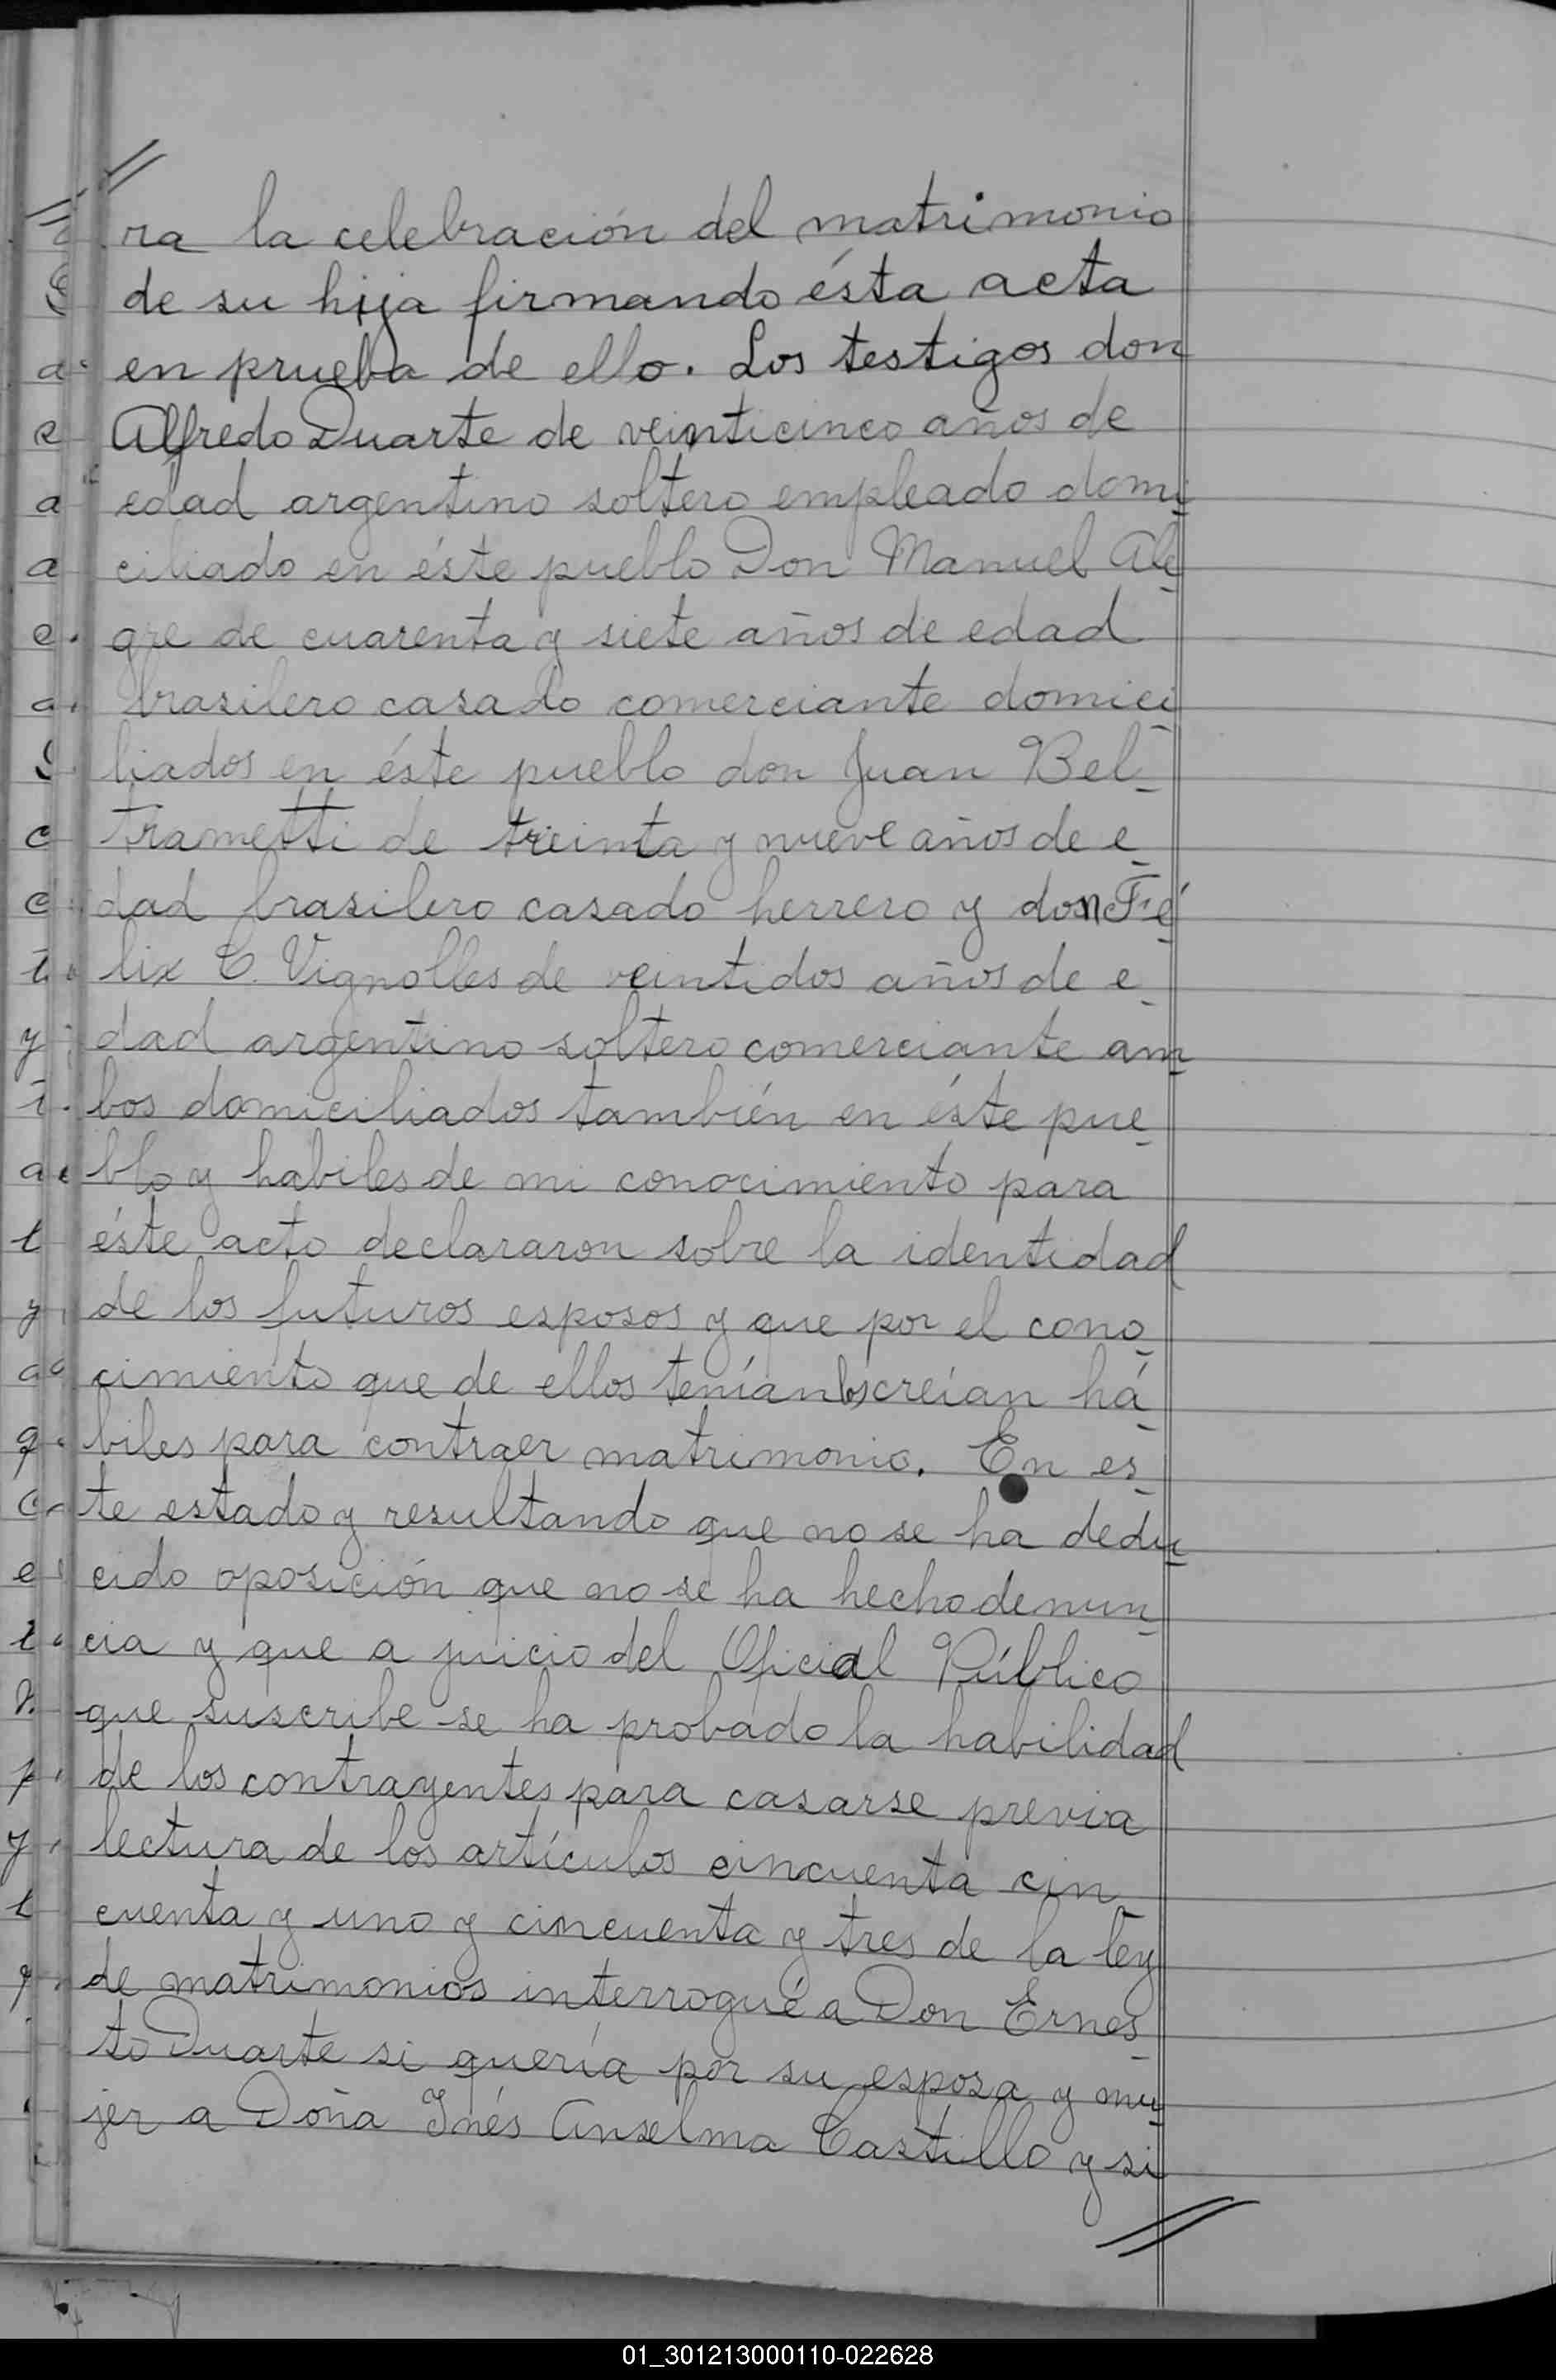 //
ra la celebración del matrimonio
de su hija firmando ésta acta
en prueba de ello. Los testigos don
Alfredo Duarte de veinticinco años de
edad argentino soltero empleado domi-
ciliado en éste pueblo Don Manuel Ale-
gre de cuarenta y siete años de edad
brasilero casado comerciante domici-
liados en éste pueblo don Juan Bel-
trametti de treinta y nueve años de e-
dad brasilero casado herrero y don Fé-
lix C. Vignolles de veintidos años de e-
dad argentino soltero comerciante am-
bos domiciliados también en éste pue-
blo y habiles de mi conocimiento para
éste acto declararon sobre la identidad
de los futuros esposos y que por el cono-
cimiento que de ellos tenían los creían há-
biles para contraer matrimonio. En es-
te estado y resultando que no se ha dedu-
cido oposición que no se ha hecho denun-
cia y que a juicio del Oficial Público
que suscribe se ha probado la habilidad
de los contrayentes para casarse previa
lectura de los artículos cincuenta cin-
cuenta y uno y cincuenta y tres de la ley
de matrimonios interrogué a Don Ernes-
to Duarte si quería por su esposa y mu-
jer a Doña Inés Anselma Castillo y si
//
01_301213000110-022628